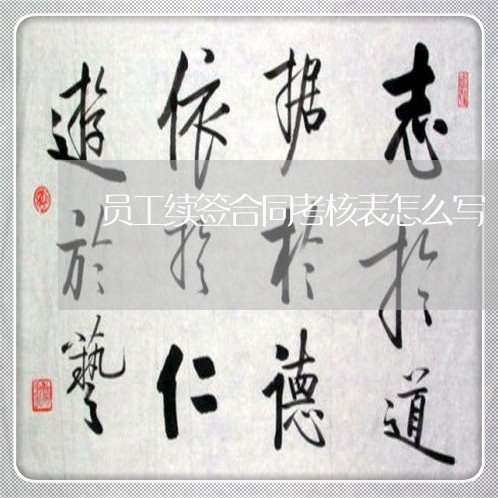 志於道
据於德
依於仁
遊於藝
员工续签合同考核表怎么写